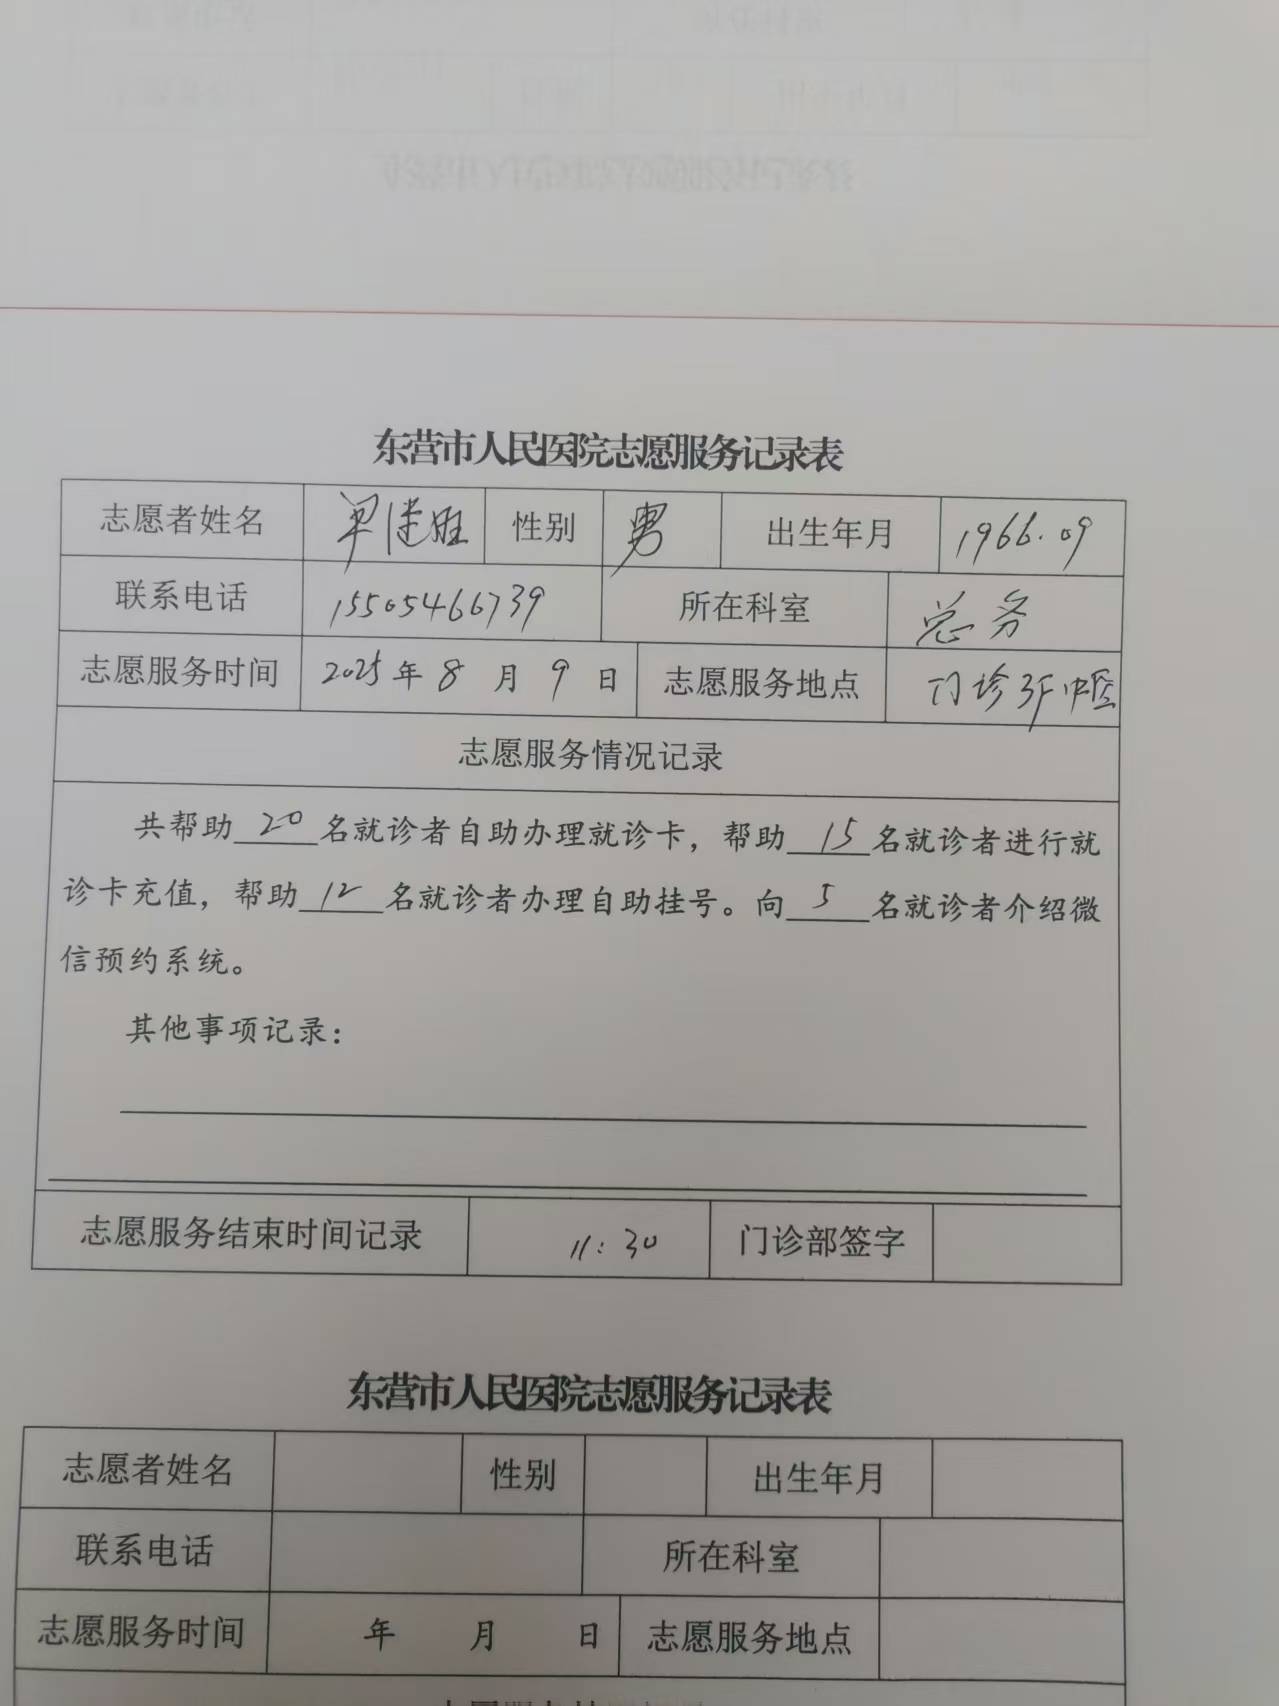 东营市人民医院志愿服务记录表
志愿者姓名 单建胜 性别 男 出生年月 1966.09
联系电话 15505466739 所在科室 总务
志愿服务时间 2025年 8 月 9 日 志愿服务地点 门诊3F中医
志愿服务情况记录
共帮助 20 名就诊者自助办理就诊卡，帮助 15 名就诊者进行就
诊卡充值，帮助 12 名就诊者办理自助挂号。向 5 名就诊者介绍微
信预约系统。
其他事项记录：
志愿服务结束时间记录 11:30 门诊部签字
东营市人民医院志愿服务记录表
志愿者姓名 性别 出生年月
联系电话 所在科室
志愿服务时间 年 月 日 志愿服务地点